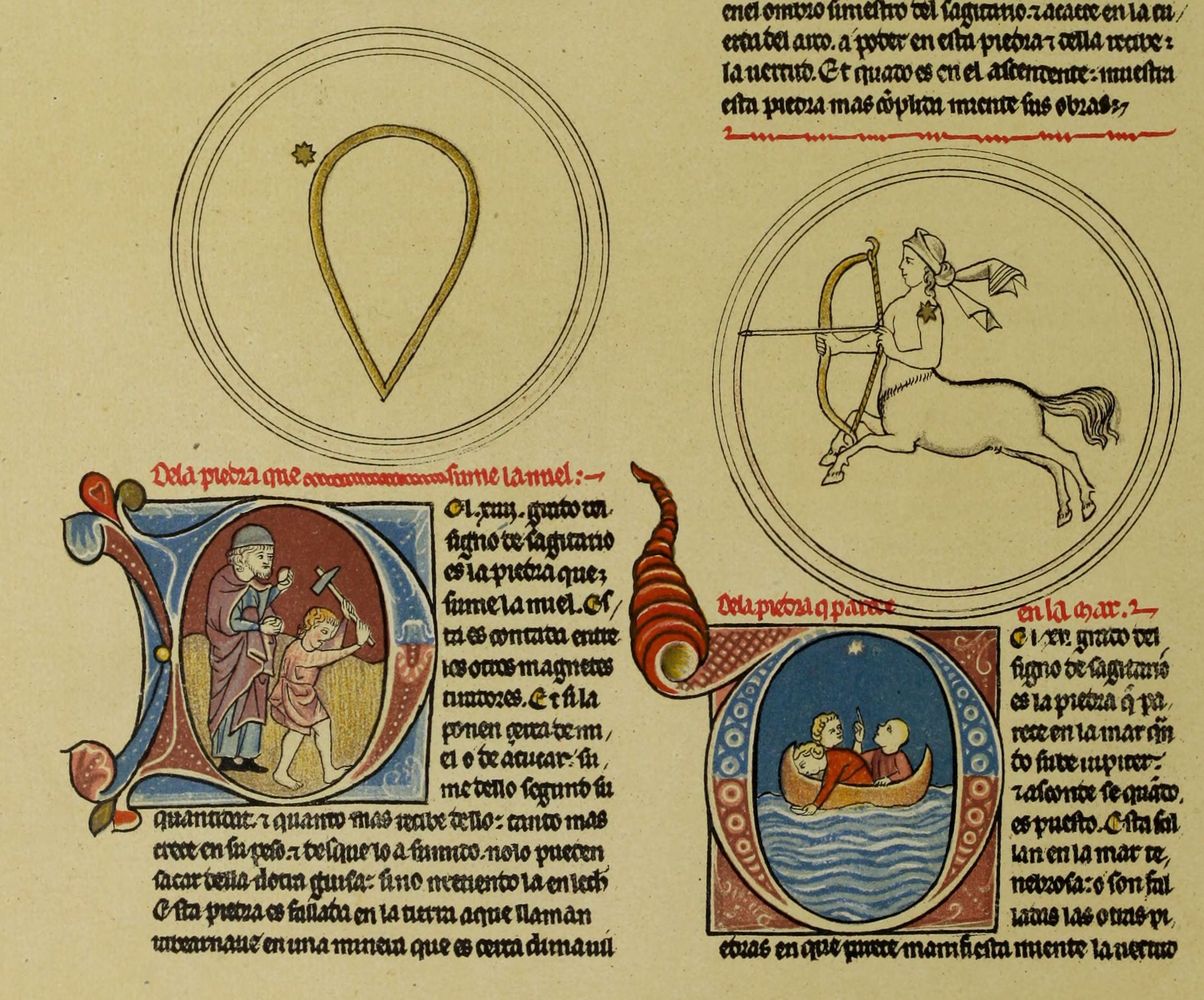 Dela piedra que sume la miel:
El .xiiij. grado del
signo de sagitario
es la piedra que
sume la miel. Es
ta es contada entre
los otros magnetes
tiradores. Et si la
ponen çerca de mi
el o de açucar: su
me dello segund su
quantidat. ⁊ quanto mas recibe dello: tanto mas
crece en su peso. ⁊ desque lo a sumido. nolo pueden
sacar della dotra guisa: sino metiendo la en lech
Esta piedra es fallada en la tierra aque llaman
en una minera que es cerca
enel ombro siniestro del sagitario. ⁊ acaece en la cu
erda del arco. a poder en esta piedra ⁊ della recibe
la uertud. Et quando es en el ascendente: muestra
esta piedra mas cõplida miente sus obras
Dela piedra q̃ parece en la mar.
El .xv. grado del
signo de sagitario
es la piedra q̃ pa
rece en la mar quã
do sube iupiter:
⁊ asconde se quãdo.
es puesto. Esta fal
lan en la mar te
nebrosa: o son fal
ladas las otras pi
edras en que parece manifiesta miente la uertud